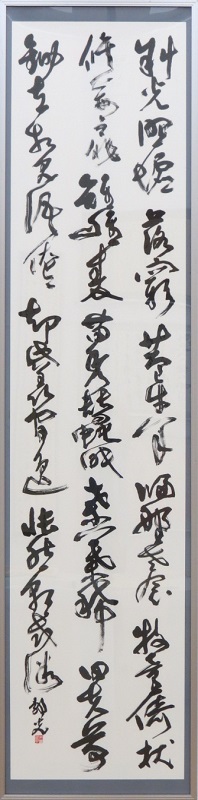 斜光照墟落窮巷牛羊歸野老念牧童倚杖
候荊扉雉雊麥苗秀蠶眠桑葉稀田夫荷
鋤立相見語依依即此羨閒逸悵然歌式微